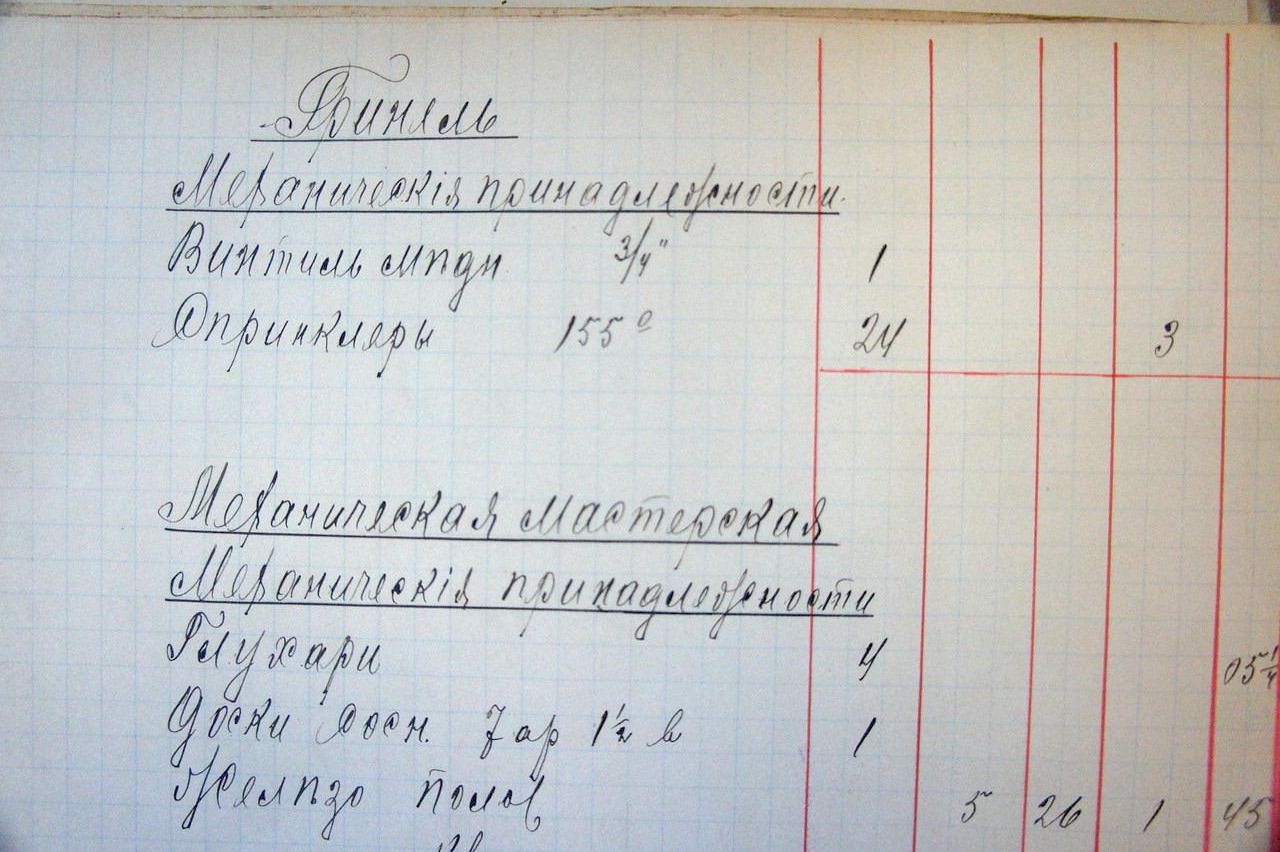 Гринель
Механическія принадлежности.
Винтиль мѣдн 3/4" 1
Спринклеры 155° 24 3
Механическая мастерская
Механическія принадлежности
Глухари 4 05 1/4
Доски сосн. 7 ар 1 1/2 в 1
Желѣзо полов 5 26 1 45